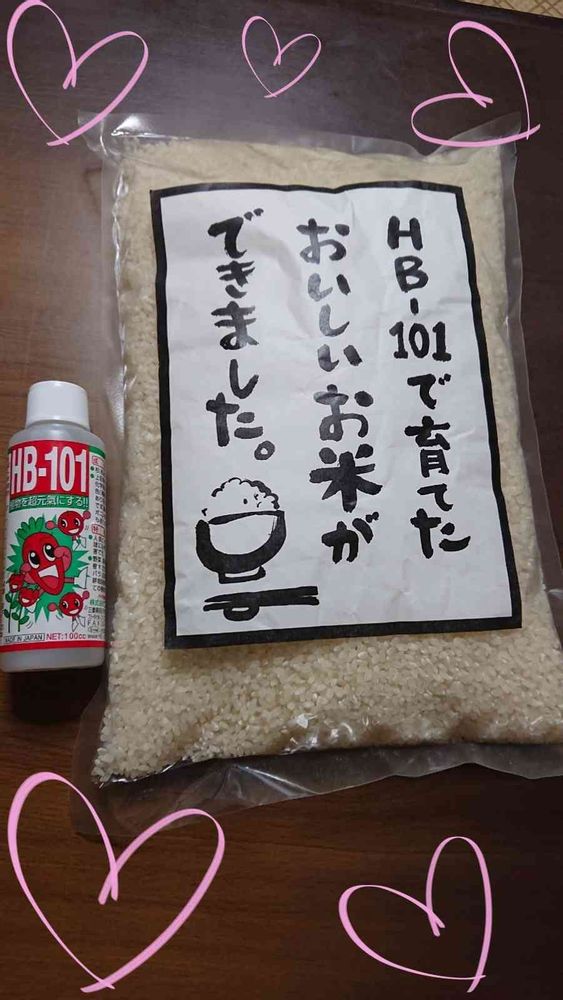 HB-101で育てた
おいしいお米が
できました。
HB-101
植物を超元気にする!!
MADE IN JAPAN
NET:100cc